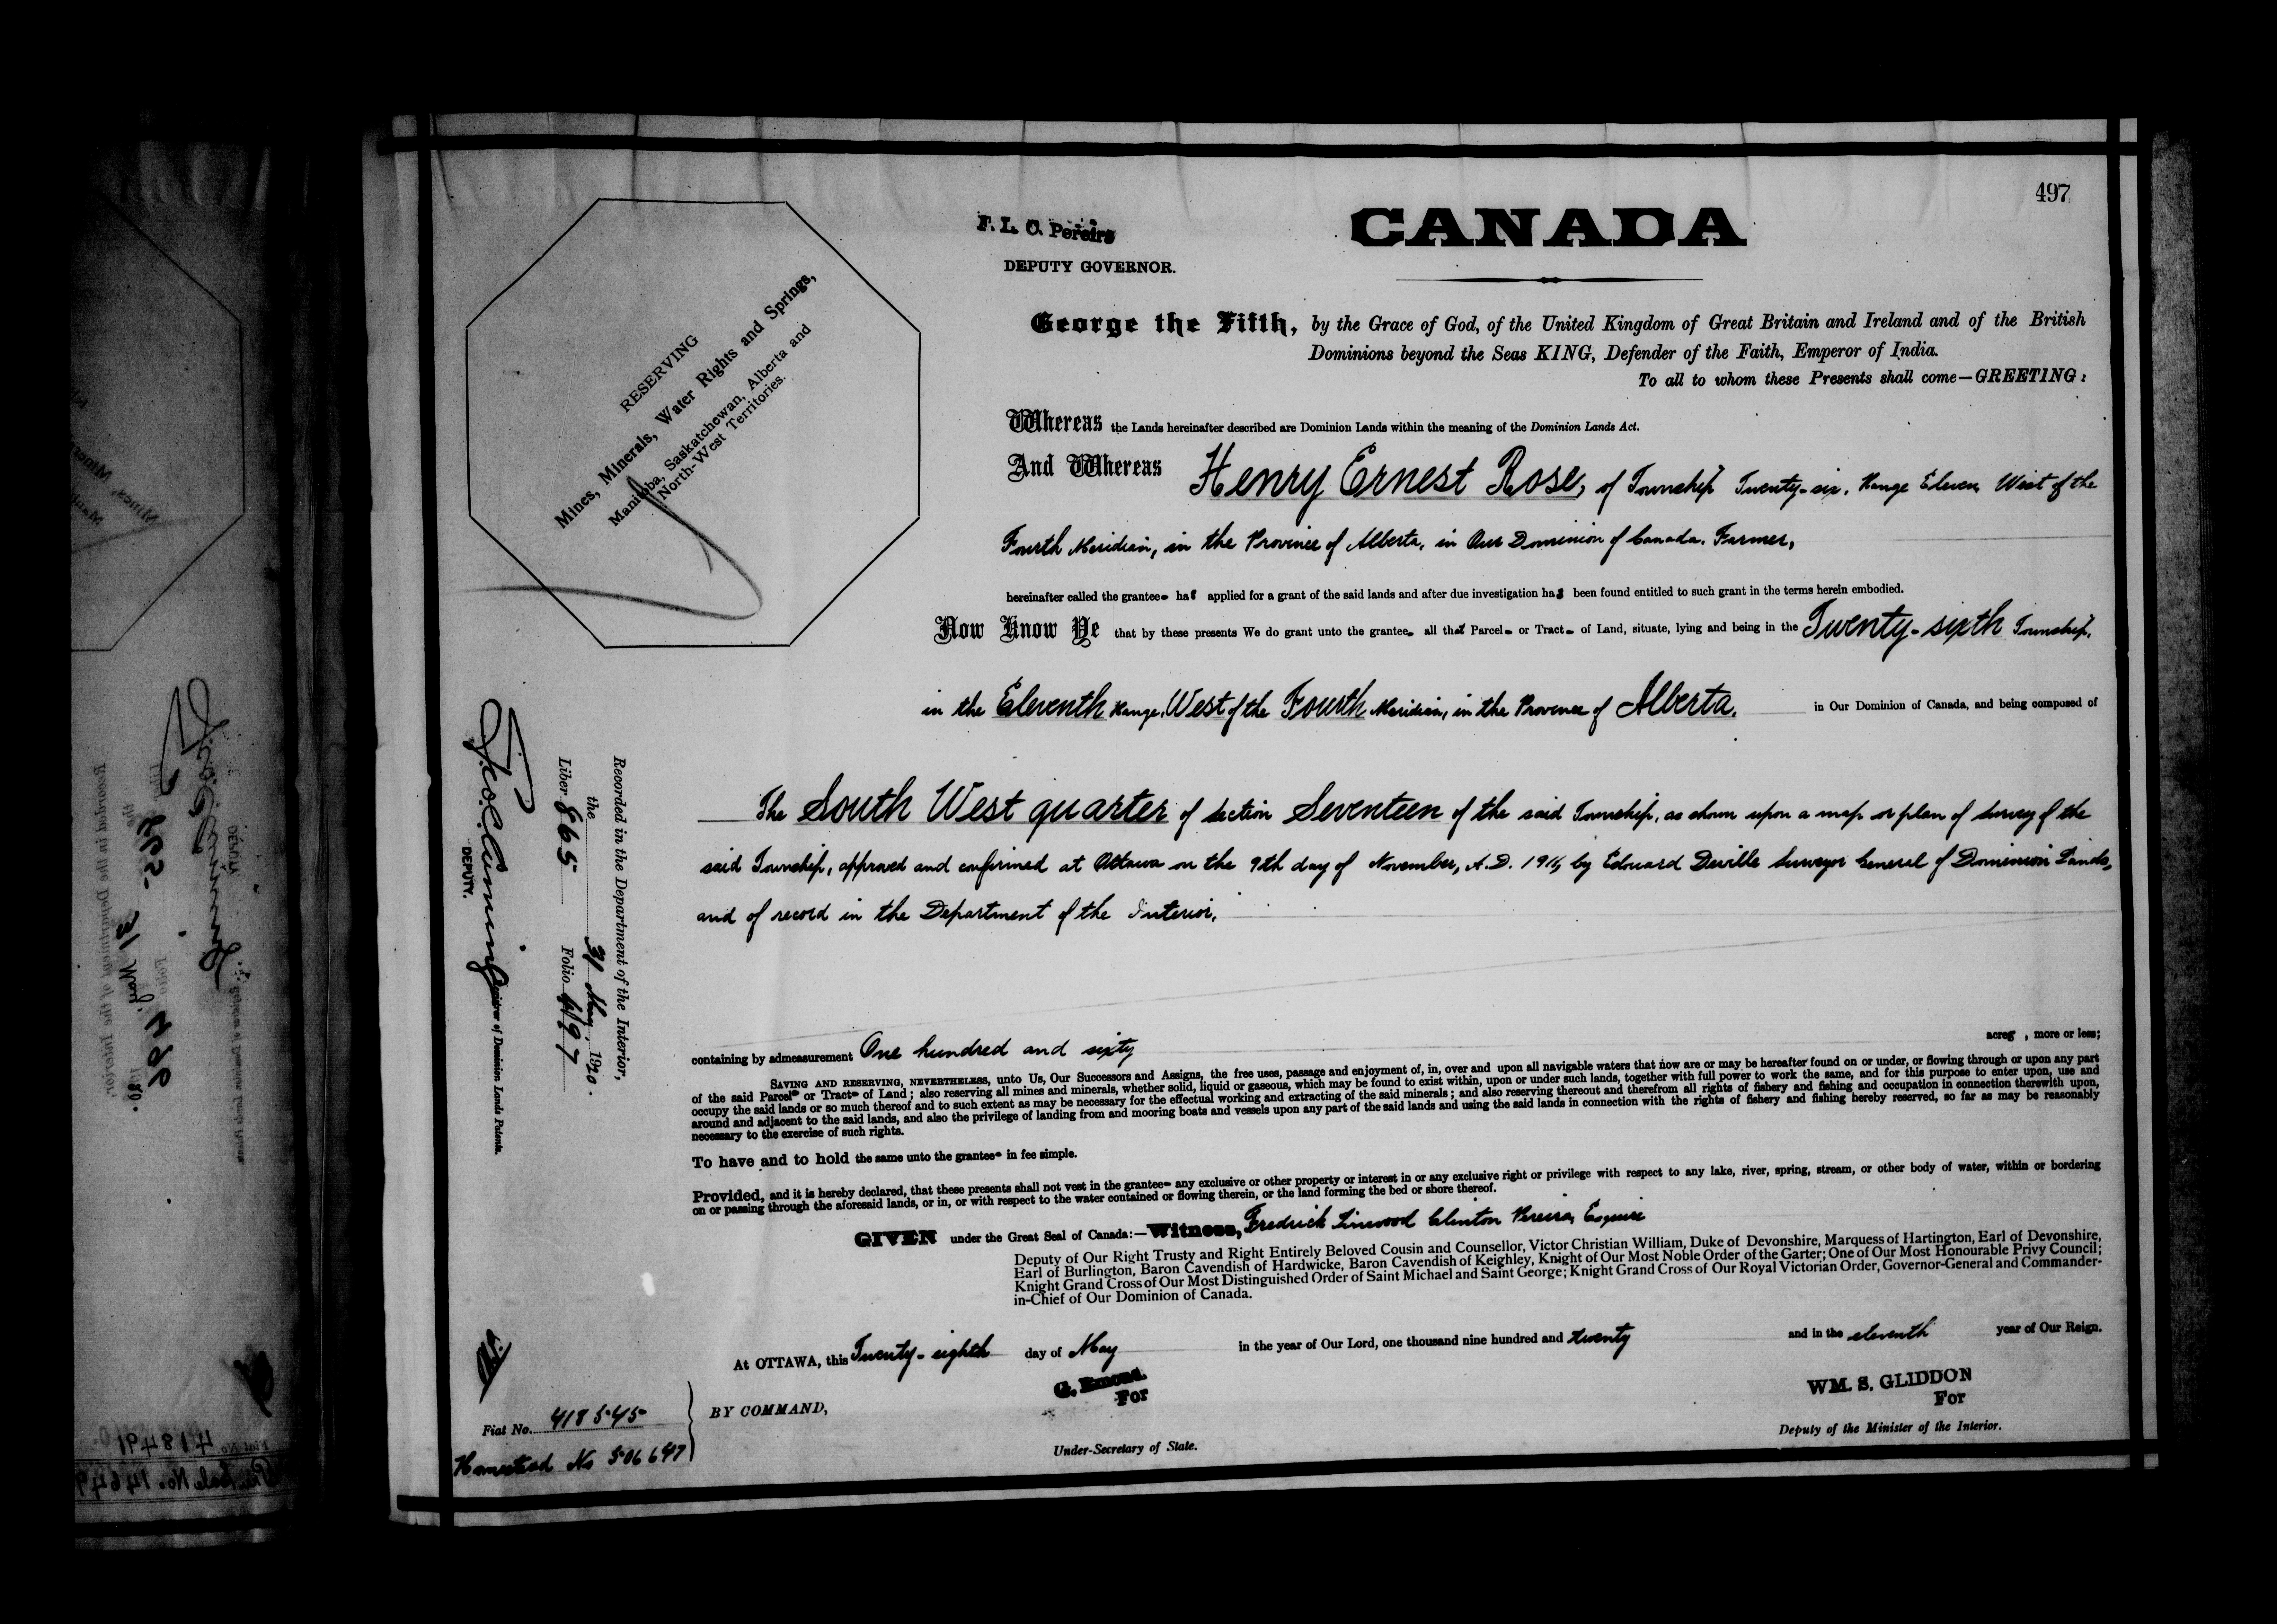 497
F. L. C. Pereira
DEPUTY GOVERNOR.
CANADA
RESERVING
Mines, Minerals, Water Rights and Springs,
Manitoba, Saskatchewan, Alberta and
North-West Territories.
George the Fifth, by the Grace of God, of the United Kingdom of Great Britain and Ireland and of the British
Dominions beyond the Seas KING, Defender of the Faith, Emperor of India.
To all to whom these Presents shall come—GREETING:
Whereas the Lands hereinafter described are Dominion Lands within the meaning of the Dominion Lands Act.
And Whereas Henry Ernest Rose, of Township Twenty-six, Range Eleven West of the
Fourth Meridian, in the Province of Alberta, in Our Dominion of Canada, Farmer,
hereinafter called the grantee has applied for a grant of the said lands and after due investigation has been found entitled to such grant in the terms herein embodied.
Now Know Ye that by these presents We do grant unto the grantee all that Parcel or Tract of Land, situate, lying and being in the Twenty-sixth Township,
in the Eleventh Range, West of the Fourth Meridian, in the Province of Alberta, in Our Dominion of Canada, and being composed of
The South West quarter of section Seventeen of the said Township, as shown upon a map or plan of survey of the
said Township, approved and confirmed at Ottawa on the 9th day of November, A.D. by Edouard Deville Surveyor General of Dominion Lands,
and of record in the Department of the Interior,
containing by admeasurement One hundred and sixty acres, more or less;
SAVING AND RESERVING, NEVERTHELESS, unto Us, Our Successors and Assigns, the free uses, passage and enjoyment of, in, over and upon all navigable waters that now are or may be hereafter found on or under, or flowing through or upon any part
of the said Parcel or Tract of Land; also reserving all mines and minerals, whether solid, liquid or gaseous, which may be found to exist within, upon or under such lands, together with full power to work the same, and for this purpose to enter upon, use and
occupy the said lands or so much thereof and to such extent as may be necessary for the effectual working and extracting of the said minerals; and also reserving thereout and therefrom all rights of fishery and fishing and occupation in connection therewith upon,
around and adjacent to the said lands, and also the privilege of landing from and mooring boats and vessels upon any part of the said lands and using the said lands in connection with the rights of fishery and fishing hereby reserved, so far as may be reasonably
necessary to the exercise of such rights.
To have and to hold the same unto the grantee in fee simple.
Provided, and it is hereby declared, that these presents shall not vest in the grantee any exclusive or other property or interest in or any exclusive right or privilege with respect to any lake, river, spring, stream, or other body of water, within or bordering
on or passing through the aforesaid lands, or in, or with respect to the water contained or flowing therein, or the land forming the bed or shore thereof.
GIVEN under the Great Seal of Canada:—Witness, Fredrick Linwood Clinton Pereira, Esquire
Deputy of Our Right Trusty and Right Entirely Beloved Cousin and Counsellor, Victor Christian William, Duke of Devonshire, Marquess of Hartington, Earl of Devonshire,
Earl of Burlington, Baron Cavendish of Hardwicke, Baron Cavendish of Keighley, Knight of Our Most Noble Order of the Garter; One of Our Most Honourable Privy Council;
Knight Grand Cross of Our Most Distinguished Order of Saint Michael and Saint George; Knight Grand Cross of Our Royal Victorian Order, Governor-General and Commander-
in-Chief of Our Dominion of Canada.
At OTTAWA, this Twenty-eighth day of May in the year of Our Lord, one thousand nine hundred and twenty and in the eleventh year of Our Reign.
BY COMMAND,
G. Emond.
For
Under-Secretary of State.
WM. S. GLIDDON
For
Deputy of the Minister of the Interior.
Recorded in the Department of the Interior,
the 31 May, 1920.
Liber 865 Folio 497
DEPUTY.
Registrar of Dominion Lands Patents.
Fiat No. 418545
Homestead No 506647